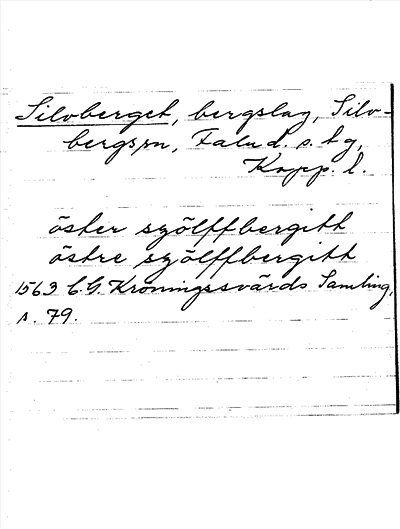 Silvberget, bergslag, Silv-
bergs sn, Falu d. s. tg,
Kopp. l.
öster szölffbergitt
östre szölffbergitt
1563 C.G. Kröningssvärds Samling,
s. 79.